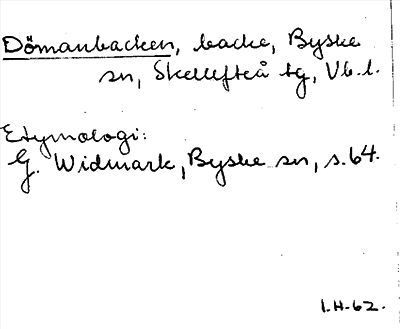 Dömanbacken, backe, Byske
sn, Skellefteå tg, Vb.l.
Etymologi:
G. Widmark, Byske sn, s.64.
I.H-62.